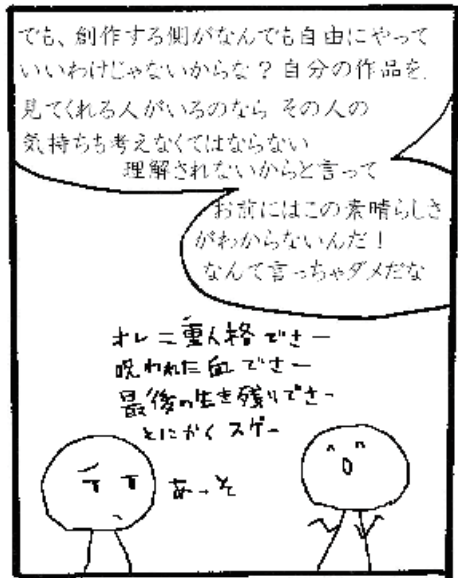 でも、創作する側がなんでも自由にやって
いいわけじゃないからな?自分の作品を、
見てくれる人がいるのなら その人の
気持ちも考えなくてはならない
理解されないからと言って
お前にはこの素晴らしさ
がわからないんだ!
なんて言っちゃダメだな
オレ二重人格でさー
呪われた血でさー
最後の生き残りでさー
とにかくスゲー
あっそ